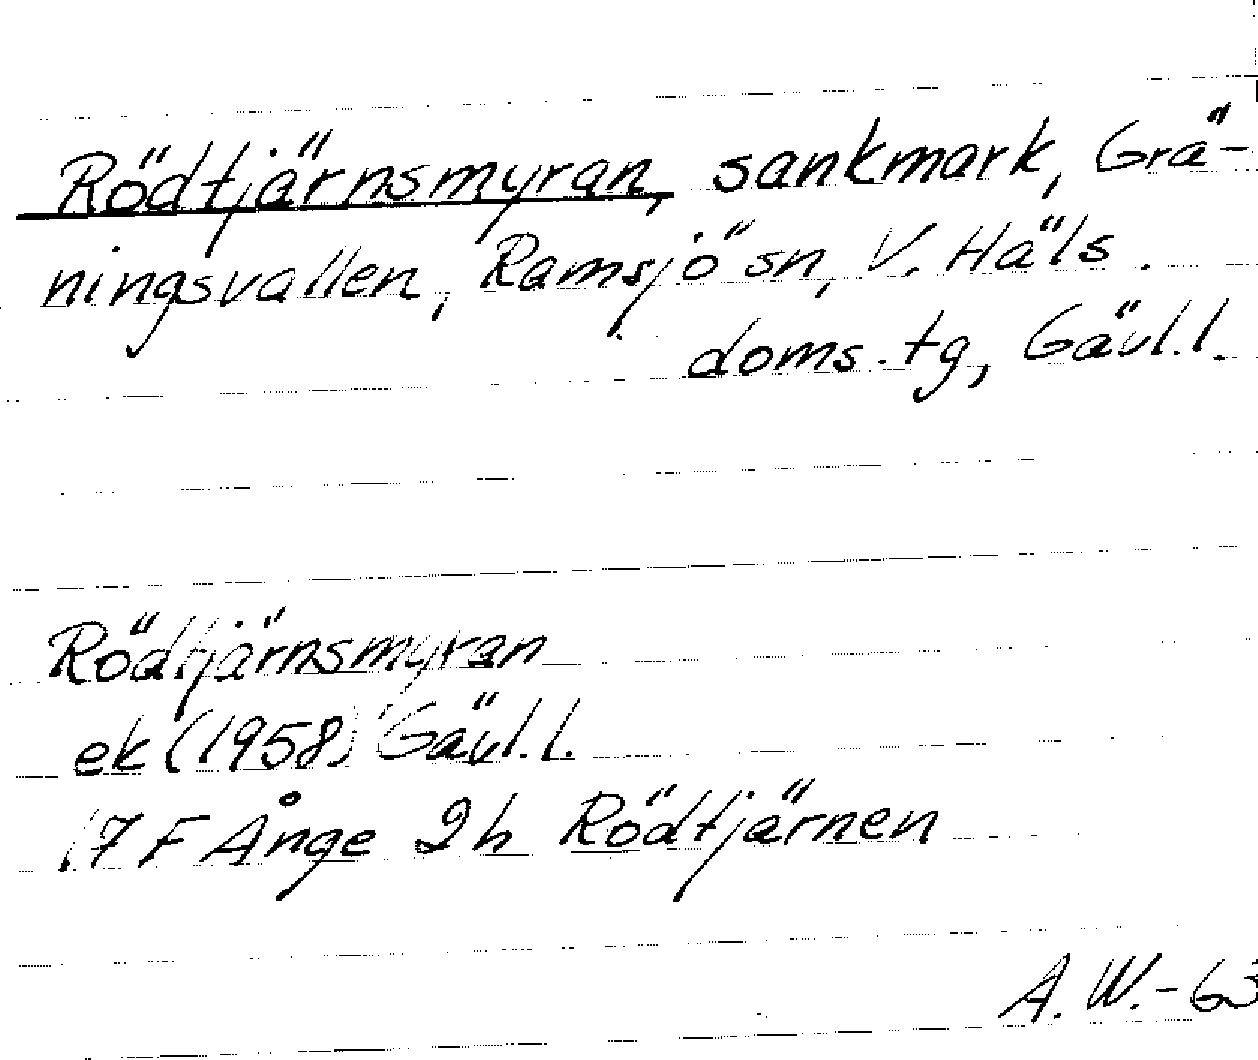 Rödtjärnsmyran, sankmark, Grä-
ningsvallen, Ramsjö sn, V. Häls.
doms. tg, Gävl. l.
Rödtjärnsmyran
ek (1958) Gävl. l.
17 F Ånge 2 h Rödtjärnen
A. W. - 63